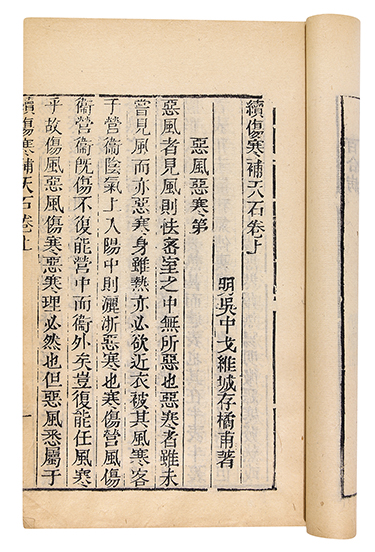 續傷寒補天石卷上
明吳中戈維城存橘甫著
惡風惡寒第
惡風者見風則怯密室之中無所惡也惡寒者雖未
嘗見風而亦惡寒身雖熱亦必欲近衣被其風寒客
于營衞陰氣上入陽中則灑淅惡寒也寒傷營風傷
衞營衞旣傷不復能營中而衞外矣豈復能任風寒
乎故傷風惡風傷寒惡寒理必然也但惡風悉屬于
續傷寒補天石卷上
一